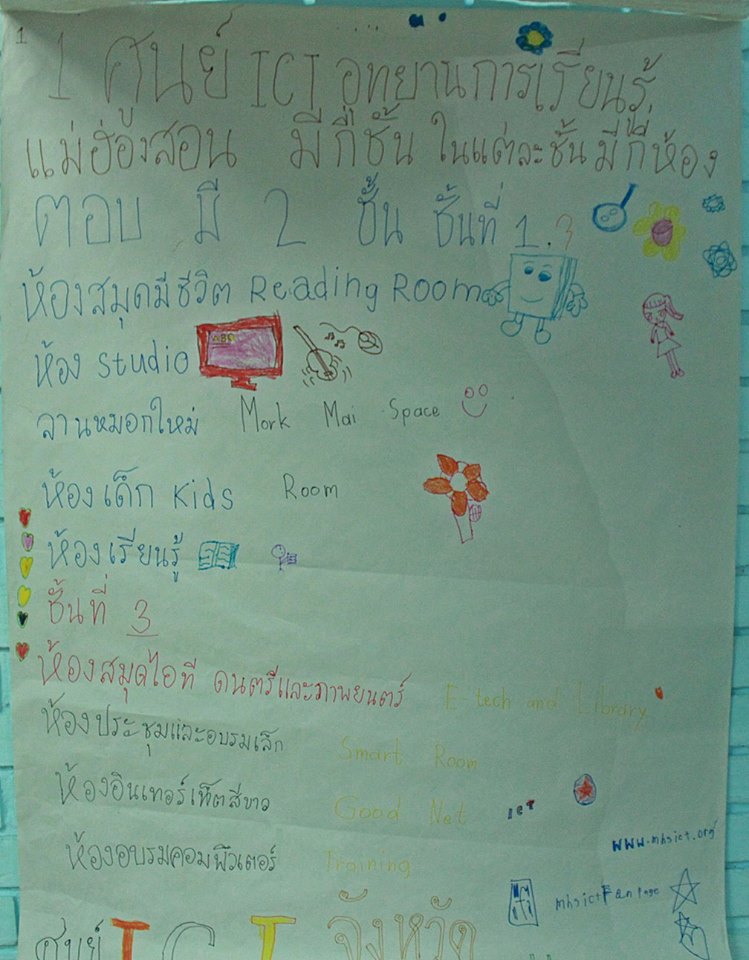 1
1 ศูนย์ ICT อุทยานการเรียนรู้
แม่ฮ่องสอน มีกี่ชั้น ในแต่ละชั้นมีกี่ห้อง
ตอบ มี 2 ชั้น ชั้นที่ 1.3
ห้องสมุดมีชีวิต Reading Room
ห้อง studio
ลานหมอกใหม่ Mork Mai Space
ห้องเด็ก Kids Room
ห้องเรียนรู้
ชั้นที่ 3
ห้องสมุดไอที ดนตรีและภาพยนตร์ E-tech and Library
ห้องประชุมและอบรมเล็ก Smart Room
ห้องอินเทอร์เน็ตสีขาว Good Net ICT
ห้องอบรมคอมพิวเตอร์ Training
www.mhsict.org
mhsict Fan Page
ศูนย์ ICT จังหวัด